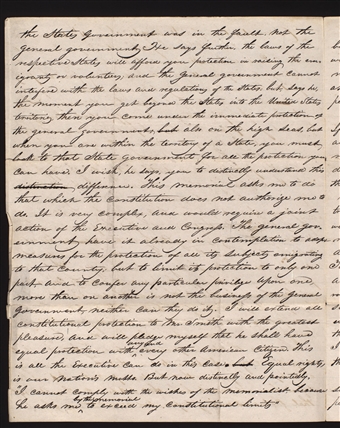 the States Government was in the fault, not the
general government. He says further the laws of the
respective States, will afford you protection in seeking the em-
igrants or volunteers, and the general government cannot
interfere with the laws and regulations of the States, but, says he,
the moment you get beyond the State, into the United States
territory, then you come under the immediate protection of
the general government, but also on the high seas, but
when you are within the territory of a State, you must
look to that State government for all the protection you
can have. I wish, he says, you to distinctly understand this
distinction difference. This memorial asks me to do
that which the Constitution does not authorize me to
do. It is very complex, and would require a joint
action of the Executive and Congress. The general gov-
ernment have it already in contemplation to
measures for the protection of all its subjects emigrating
to that Country, but to limit its protection to only one
part and to confer any particular privilege upon one
more than on another is not the business of the General
Government, neither can they do it. I will extend all
constitutional protection to Mr Smith with the greatest
pleasure, and will pledge myself that he shall have
equal protection with every other American Citizen. This
is all the Executive can do in this case, Equal rights,
is our Nation's Motto. But now distinctly and pointedly,
"I cannot comply with the wishes of the memorialist because
he asks me by the memorial to exceed my Constitutional limits